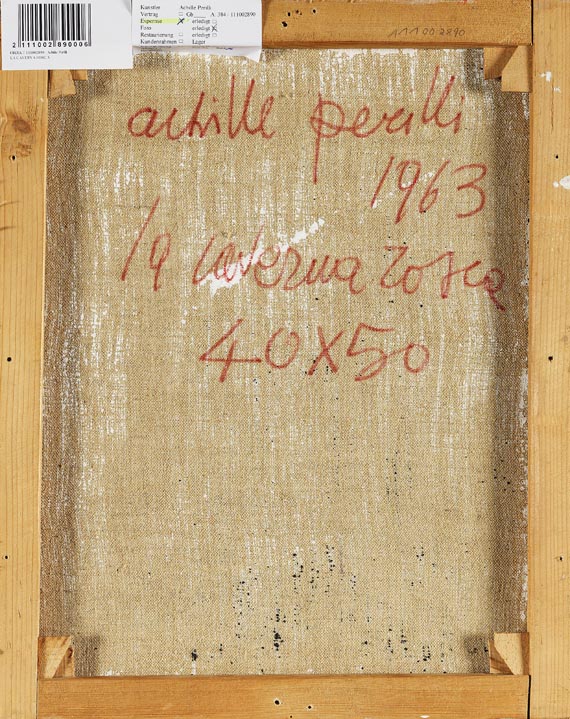 2111002890006
Künstler Achille Perilli
Vertrag Gb A 384 - 111002890
Expertise erledigt
Foto erledigt
Restaurierung erledigt
Kundenrahmen Lager
111002890
achille perilli
1963
la caverna rosea
40X50